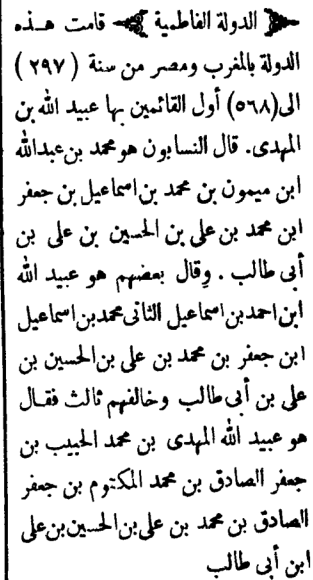 الدولة الفاطمية قامت هذه
الدولة بالمغرب ومصر من سنة (٢٩٧)
الى(٥٦٨) أول القائمين بها عبيد الله بن
المهدى. قال النسابون هو محمد بن عبدالله
ابن ميمون بن محمد بن اسماعيل بن جعفر
ابن محمد بن على بن الحسين بن على بن
أبى طالب . وقال بعضهم هو عبيد الله
ابن احمد بن اسماعيل الثانى محمد بن اسماعيل
ابن جعفر بن محمد بن على بن الحسين بن
على بن أبى طالب وخالفهم ثالث فقال
هو عبيد الله المهدى بن محمد الحبيب بن
جعفر الصادق بن محمد المكتوم بن جعفر
الصادق بن محمد بن على بن الحسين بن على
ابن أبى طالب